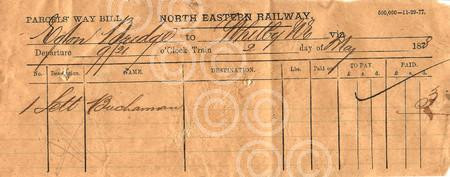 PARCELS' WAY BILL. NORTH EASTERN RAILWAY. 500,000—11-29-77.
to Whitby Via
Departure 9/21 o'Clock Train 2 day of May 1878
No. Description. NAME. DESTINATION. Lbs. Paid on TO PAY. PAID.
£ s. d. £ s. d.
1 Buchannan 3